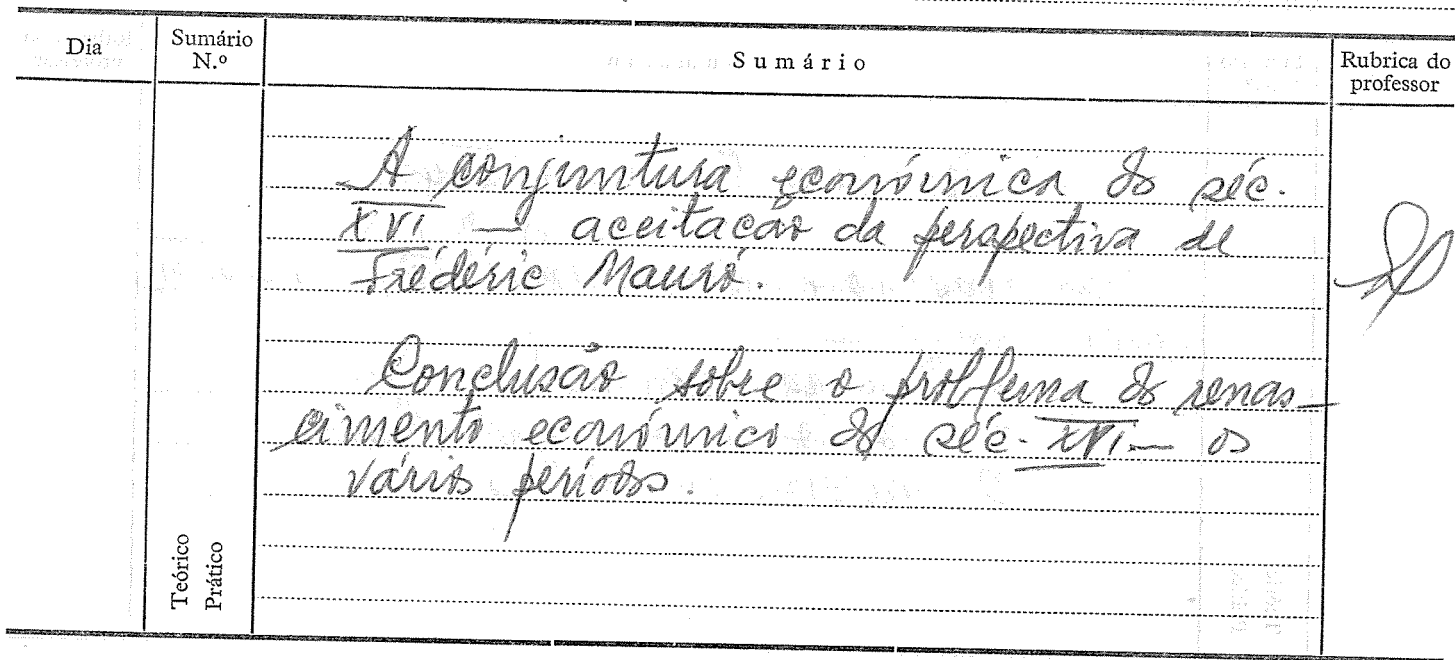 Dia
Sumário
N.º
Sumário
Rubrica do
professor
A conjuntura económica do séc.
XVI — aceitação da perspectiva de
Frédéric Mauro.
Conclusão sobre o problema do renas-
cimento económico do séc. XVI — os
vários períodos.
Teórico
Prático